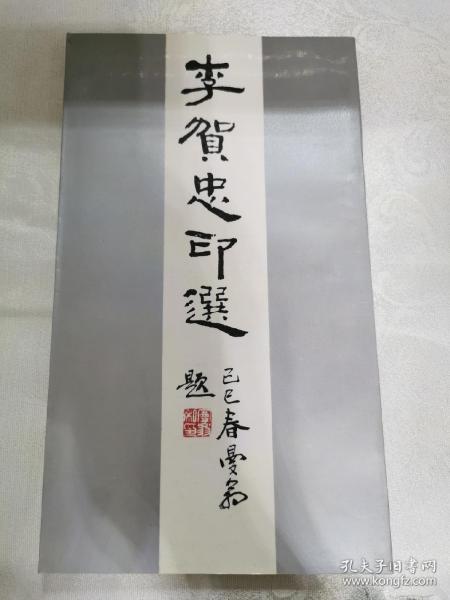 李賀忠印選
己巳春曼翁
題
孔夫子旧书网
www.kongfz.com